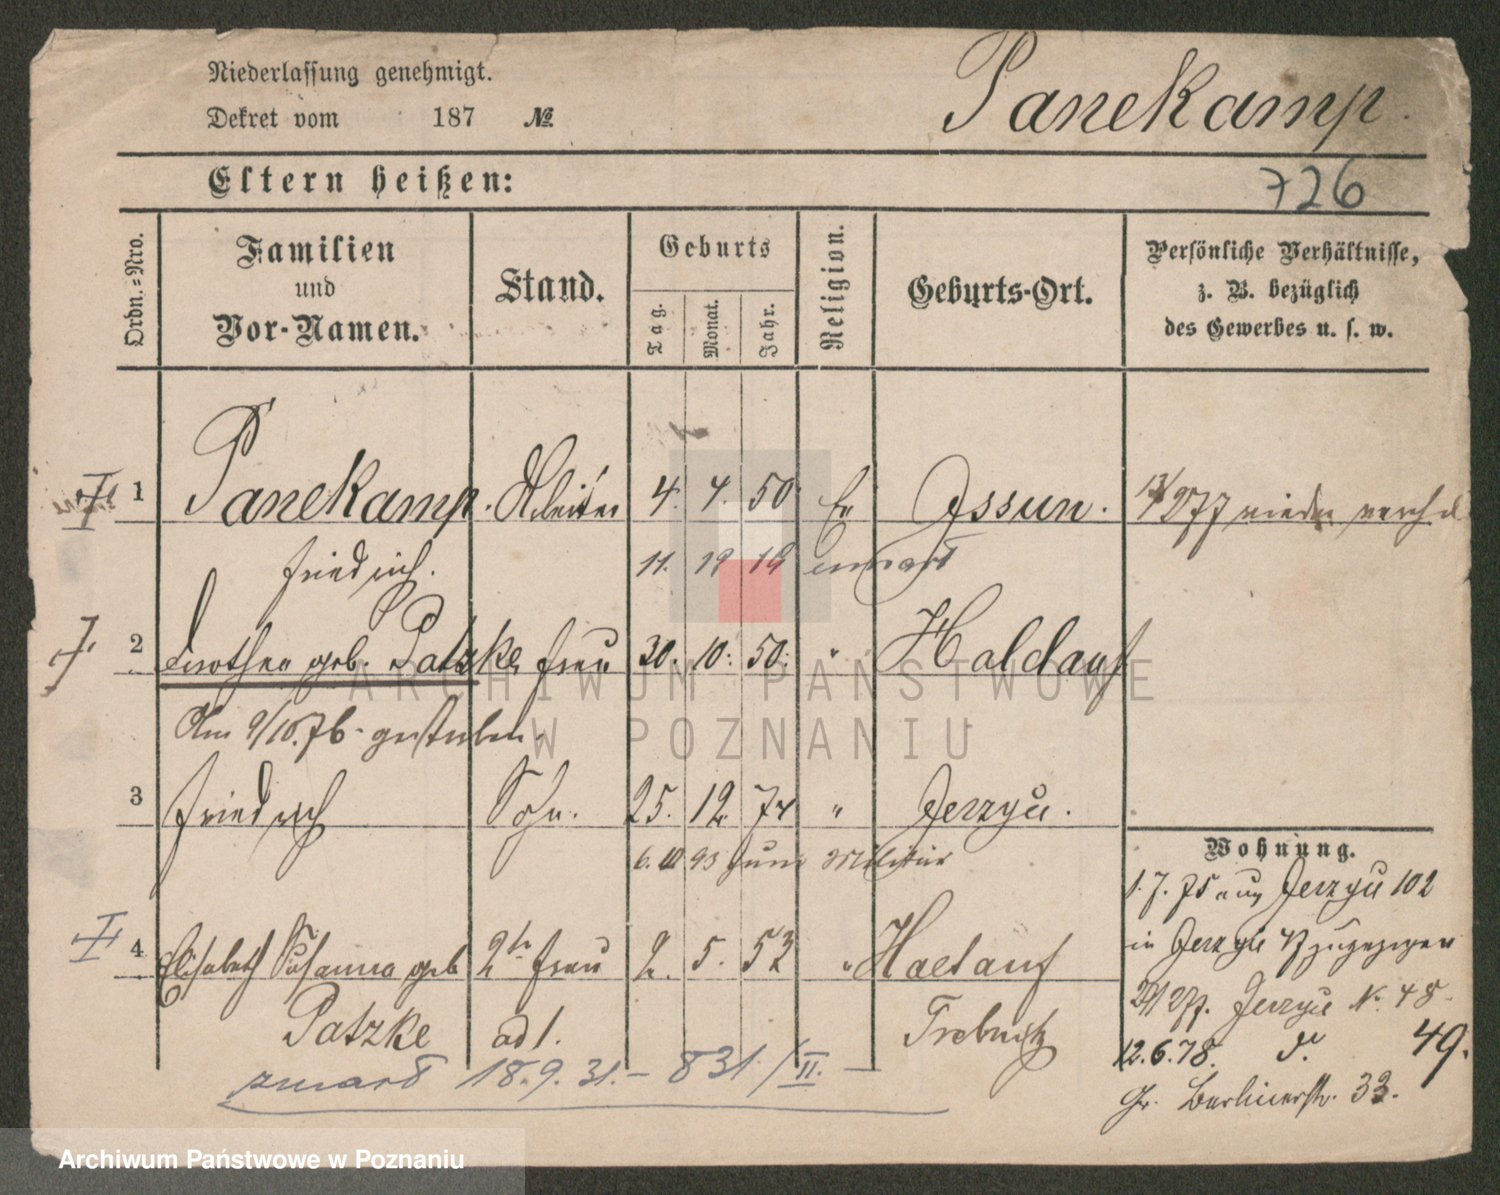 Niederlassung genehmigt.
Dekret vom 187 №
Panekamp.
Eltern heißen:
726
Ordn.-Nro.
Familien
und
Vor-Namen.
Stand.
Geburts
Tag.
Monat.
Jahr.
Religion.
Geburts-Ort.
Persönliche Verhältnisse,
z. B. bezüglich
des Gewerbes u. s. w.
1 Panekamp. Arbeiter 4. 4. 50 Ev Issun.
Friedrich. 11. 12 19 umart
2 geb. Patzke Frau 30. 10. 50. " Haldauf
Am 9/10.76. gestorben.
3 Friedrich Sohn. 25. 12. 74 " Jerzyce.
6. 10 93 zum Militär
4 Elisabeth Susanna geb 2te Frau 2. 5. 52 " Haelauf
Patzke ad 1. Trebnitz
zmarł 18.9.31. – 831./II. –
Wohnung.
1. 7. 75 aus Jerzyce 102
in Jerzyce zugezogen
Jerzyce No. 48.
12.6.78. d. 49.
Gr. Berlinerstr. 33.
ARCHIWUM PAŃSTWOWE
W POZNANIU
Archiwum Państwowe w Poznaniu